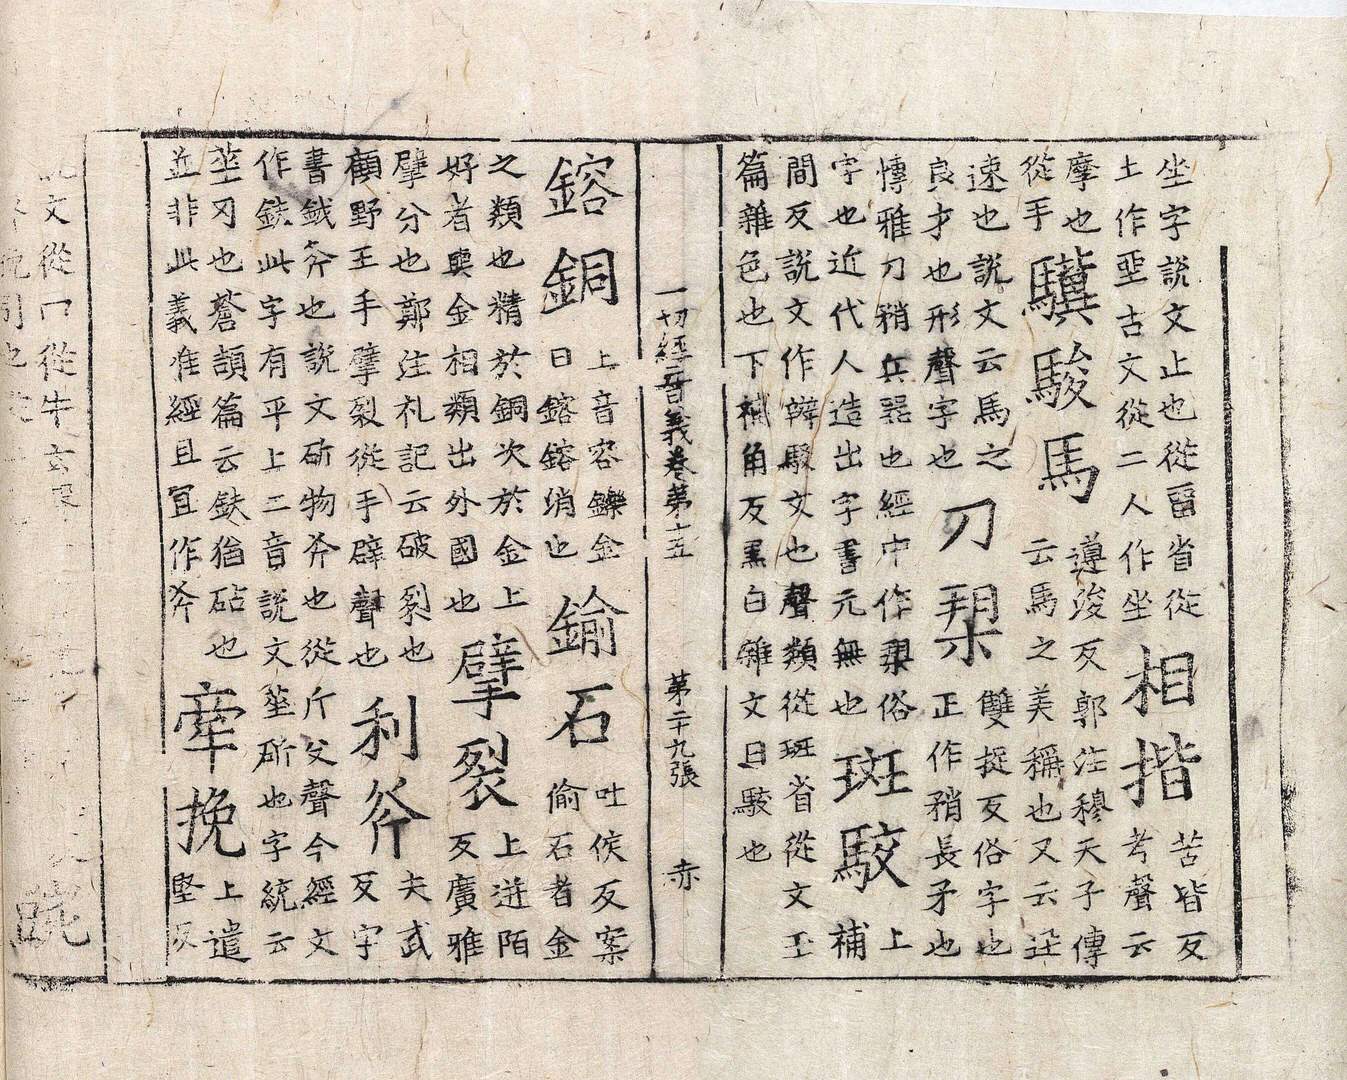 坐字說文止也從畱省從
土作坐古文從二人作坐
相揩
苦皆反
考聲云
摩也
從手
驥駿馬
遵浚反郭注穆天子傳
云馬之美稱也又云迅
速也說文云馬之
良才也形聲字也
刀槊
雙捉反俗字也
正作矟長矛也
博雅刀矟兵器也經中作槊俗
字也近代人造出字書元無也
斑駮
上
補
間反說文作辬駁文也聲類從斑省從文玉
篇雜色也下補角反黑白雜文曰駮也
一切經音義卷第十五 第二十九張 赤
鎔銅
上音容鑠金
曰鎔鎔消也
鍮石
吐侯反案
偷石者金
之類也精於銅次於金上
好者與金相類出外國也
擘裂
上迸陌
反廣雅
擘分也鄭注礼記云破裂也
顧野王手擘裂從手辟聲也
利斧
夫武
反字
書鉞斧也說文斫物斧也從斤父聲今經文
作鈇此字有平上二音說文莝斫也字統云
莝刃也蒼頡篇云鈇猶砧也
並非此義准經且宜作斧
牽挽
上遣
堅反
文從冂從牛玄